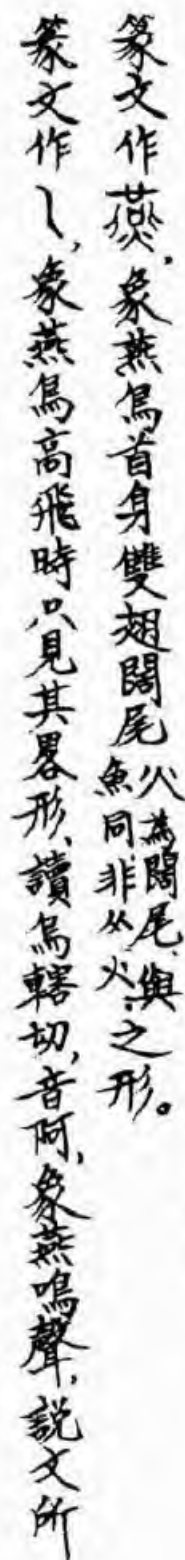 篆文作燕，象燕鳥首身雙翅闊尾火為闊尾，與魚同，非从火，之形。
篆文作乀，象燕鳥高飛時只見其畧形，讀烏轄切，音阿，象燕鳴聲，說文所